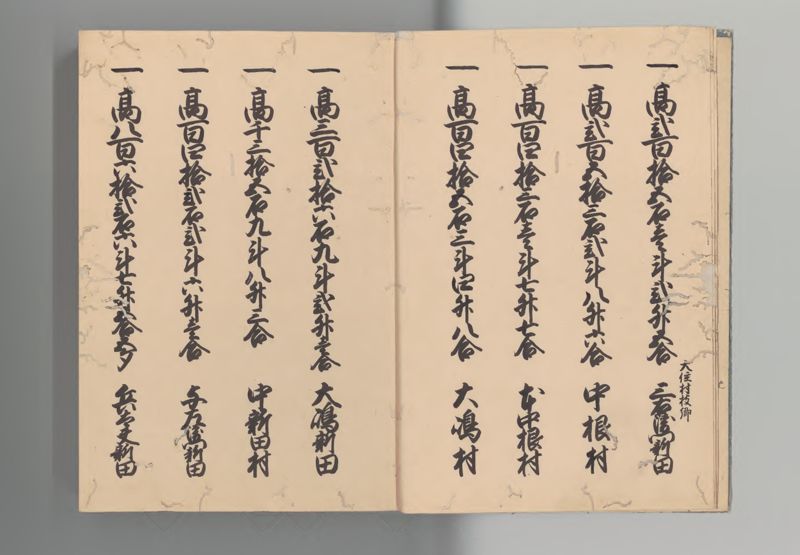 一 高弐百拾五石壱斗弐升五合 大住村枝郷 三右衛門新田
一 高弐百五拾三石弐斗八升六合 中根村
一 高百四拾三石壱斗七升七合 本中根村
一 高百四拾五石三斗四升八合 大嶋村
一 高三百弐拾六石九斗弐升壱合 大嶋新田
一 高千三拾五石九斗八升二合 中新田村
一 高百四拾弐石弐斗六升壱合 新田
一 高八百六拾弐石六斗七升 新田